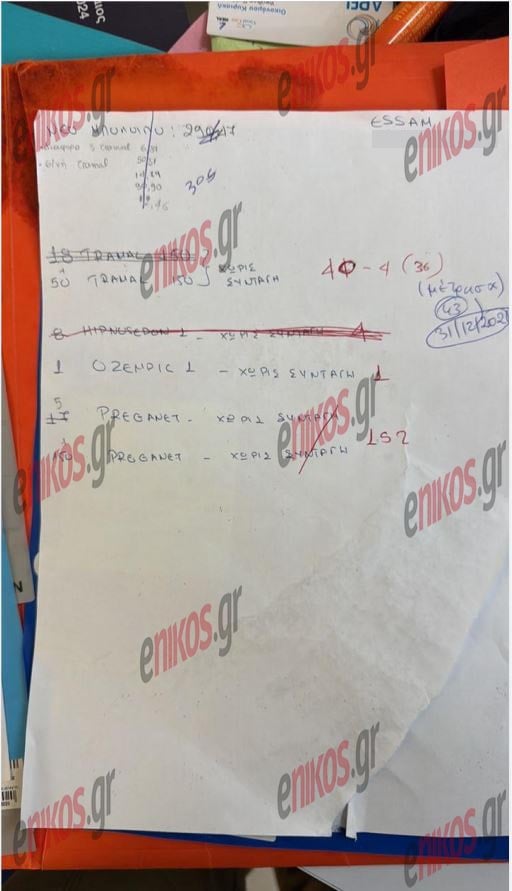 ΝΕΟ ΥΠΟΛΟΙΠΟ:
ESSAM
3 tramal 6,51
tramal 50,51
306
18 TRAMAL 150
50 TRAMAL 150
ΧΩΡΙΣ ΣΥΝΤΑΓΗ
40 - 4 (36)
(μέτρησα)
43
31/12/202
8 HIPNOSEDON 1 - ΧΩΡΙΣ ΣΥΝΤΑΓΗ 1
1 OZEMPIC 1 - ΧΩΡΙΣ ΣΥΝΤΑΓΗ 1
5
17 PREGANET - ΧΩΡΙΣ ΣΥΝΤΑΓΗ
150 PREGANET - ΧΩΡΙΣ ΣΥΝΤΑΓΗ 152
enikos.gr
enikos.gr
enikos.gr
enikos.gr
enikos.gr
enikos.gr
enikos.gr
enikos.gr
enikos.gr
enikos.gr
enikos.gr
enikos.gr